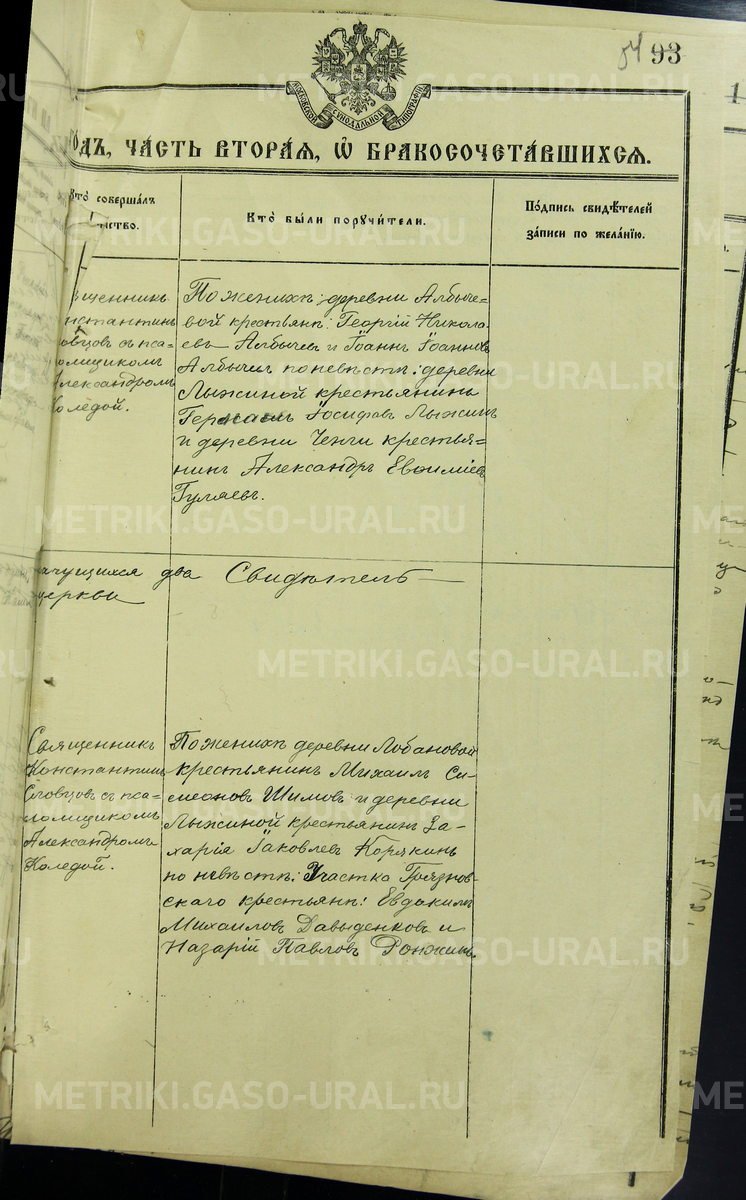 54 93
МОСКОВСКОЙ СѴНОДАЛЬНОЙ ТИПОГРАФІИ
ГОДЪ, ЧА́СТЬ ВТОРА́Я, Ѡ҆ БРАКОСОЧЕТА́ВШИХСЯ.
Кто̀ соверша́лъ
нство.
Кто̀ бы́ли поручи́тели.
По́дпись свидѣ́телей
за́писи по жела́нію.
щенникъ
нстантинъ
овцовъ съ пса-
омщикомъ
лександромъ
оледой.
По женихѣ: деревни Албыче-
вой крестьян: Георгій Никола-
евъ Албычев и Іоаннъ Іоанновъ
Албычевъ по невѣстѣ: деревни
Лыжиной крестьянинъ
Іосифовъ Лыжинъ
и деревни Ченчи крестья-
нинъ Александръ Евѳиміевъ
Гуляевъ.
ачущихся два Свидѣтель
церкви
Священникъ
Константинъ
Словцовъ съ пса-
ломщикомъ
Александромъ
Коледой.
По женихѣ деревни Лобановой
крестьянинъ Михаилъ Си-
меоновъ Шимовъ и деревни
Лыжиной крестьянинъ За-
харія Іаковлев Корякинъ
по невѣстѣ: Участка Грязнов-
скаго крестьян: Евдокимъ
Михаиловъ Давыденковъ и
Назарій Павловъ Ронжинъ.
METRIKI.GASO-URAL.RU